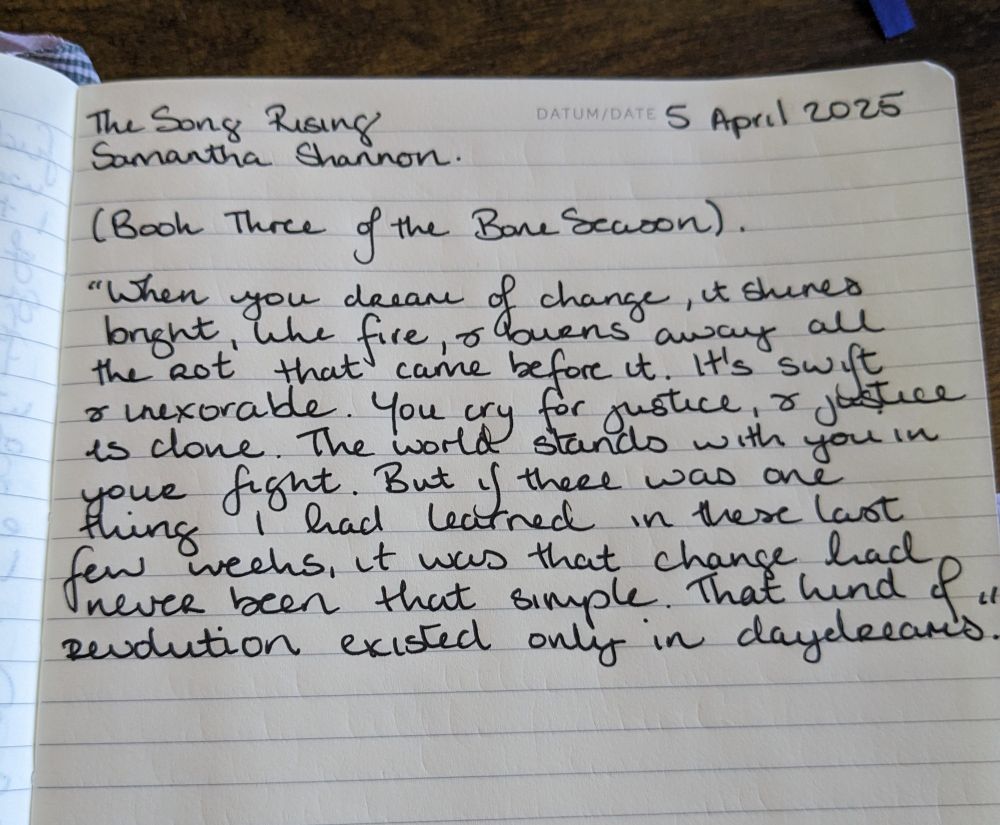 The Song Rising
DATUM/DATE 5 April 2025
Samantha Shannon.
(Book Three of the Bone Season).
"When you dream of change, it shines
bright, like fire, & burns away all
the rot that came before it. It's swift
& inexorable. You cry for justice, & justice
is done. The world stands with you in
your fight. But if there was one
thing I had learned in these last
few weeks, it was that change had
never been that simple. That kind of
revolution existed only in daydreams."